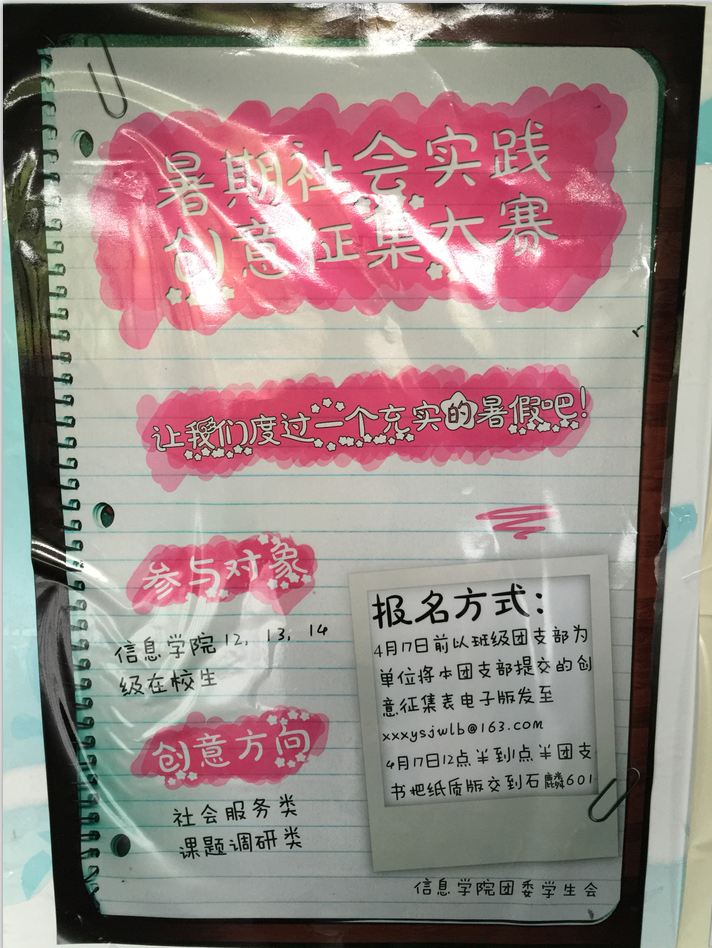 暑期社会实践
创意征集大赛
让我们度过一个充实的暑假吧!
参与对象
信息学院12, 13, 14
级在校生
创意方向
社会服务类
课题调研类
报名方式:
4月17日前以班级团支部为
单位将本团支部提交的创
意征集表电子版发至
xxxysjwlb@163.com
4月17日12点半到1点半团支
书把纸质版交到石麟601
信息学院团委学生会